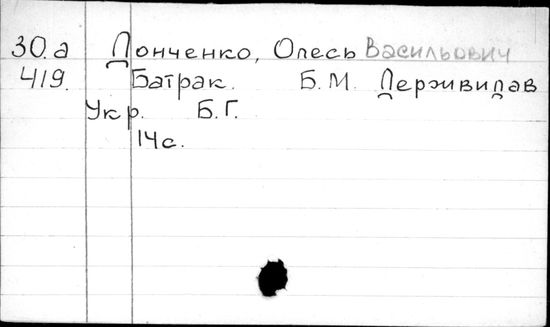 30.а Донченко, Олесь Васильович
419. Батрак. Б.М. Держвидав
Укр. Б.Г.
14с.